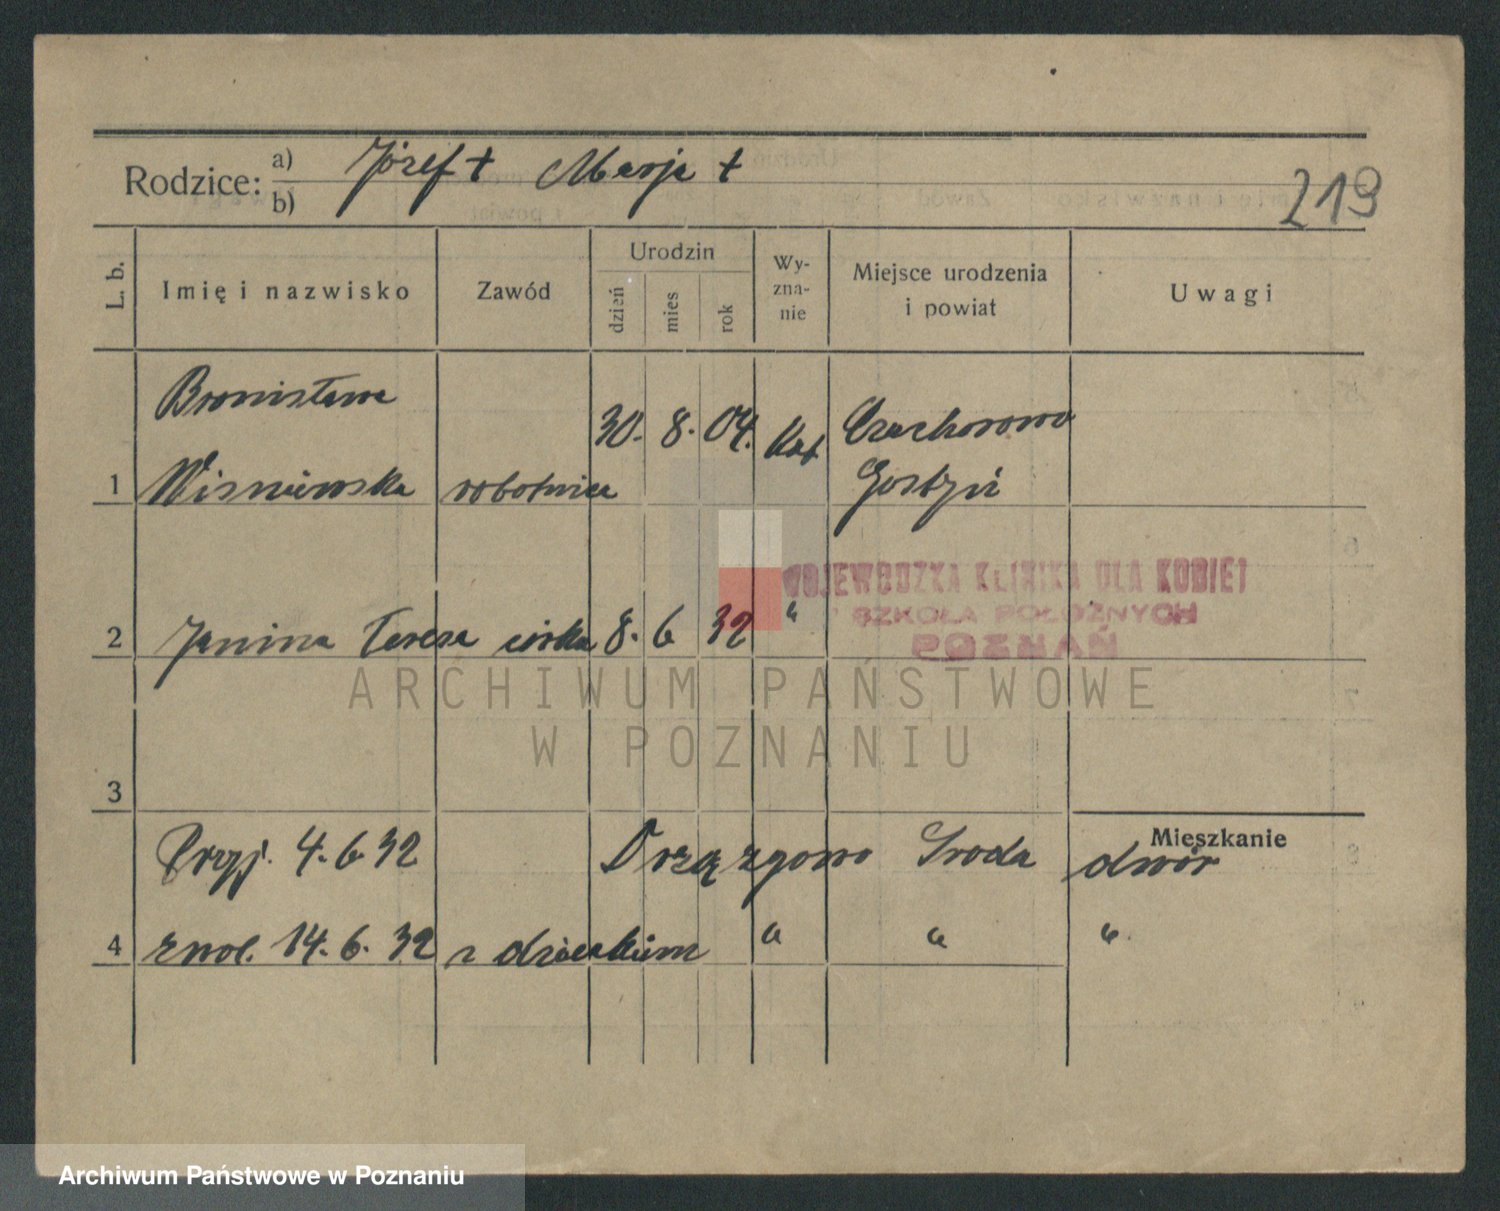 Rodzice: a) Józef + Marja +
b)
219
L. b. Imię i nazwisko Zawód Urodzin dzień mies rok Wy-zna-nie Miejsce urodzenia i powiat Uwagi
Bronisława 30. 8. 04. Kat Czachorowo
1 Wisniewska robotnica Gostyń
WOJEWÓDZKA KLINIKA DLA KOBIET
SZKOŁA POŁOŻNYCH
2 Janina Teresa córka 8. 6 32 "
POZNAŃ
ARCHIWUM PAŃSTWOWE
W POZNANIU
3
Mieszkanie
Przyj. 4. 6 32 Drzązgowo Środa dwór
4 zwol. 14. 6. 32 z dzieckiem " " "
Archiwum Państwowe w Poznaniu